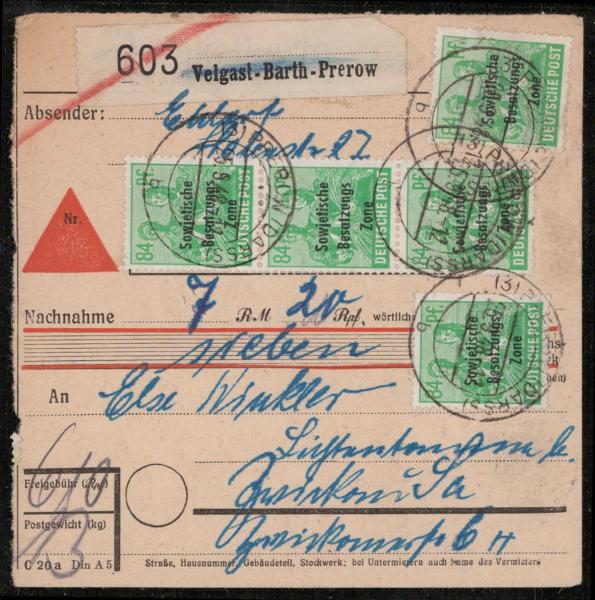 603 Velgast-Barth-Prerow
Absender:
84 PF
Sowjetische
Besatzungs
Zone
DEUTSCHE POST
84 PF
Sowjetische
Besatzungs
Zone
84 PF
Sowjetische
Besatzungs
Zone
DEUTSCHE POST
84
Sowjetische
Besatzungs
Zone
DEUTSCHE POST
(3) PREROW (DARSS)
b
Nr.
Nachnahme 7 RM 20 Rpf. wörtlich
sieben
84 PF
Sowjetische
Besatzungs
Zone
DEUTSCHE POST
An Else Winkler
Lichtentanne b.
Zwickau Sa
Zwickauerstr 6 H
Freigebühr (Rpf)
610
Postgewicht (kg)
13
C 20 a Din A 5
Straße, Hausnummer, Gebäudeteil, Stockwerk; bei Untermietern auch Name des Vermieters